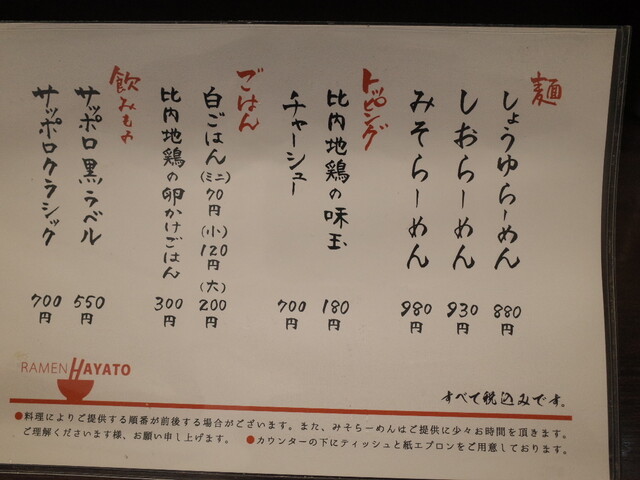 麺
しょうゆらーめん 880円
しおらーめん 930円
みそらーめん 980円
トッピング
比内地鶏の味玉 180円
チャーシュー 700円
ごはん
白ごはん(ミニ)70円(小)120円(大)200円
比内地鶏の卵かけごはん 300円
飲みもの
サッポロ黒ラベル 550円
サッポロクラシック 700円
RAMEN HAYATO
すべて税込みです。
●料理によりご提供する順番が前後する場合がございます。また、みそらーめんはご提供に少々お時間を頂きます。
ご理解くださいます様、お願い申し上げます。 ●カウンターの下にティッシュと紙エプロンをご用意しております。